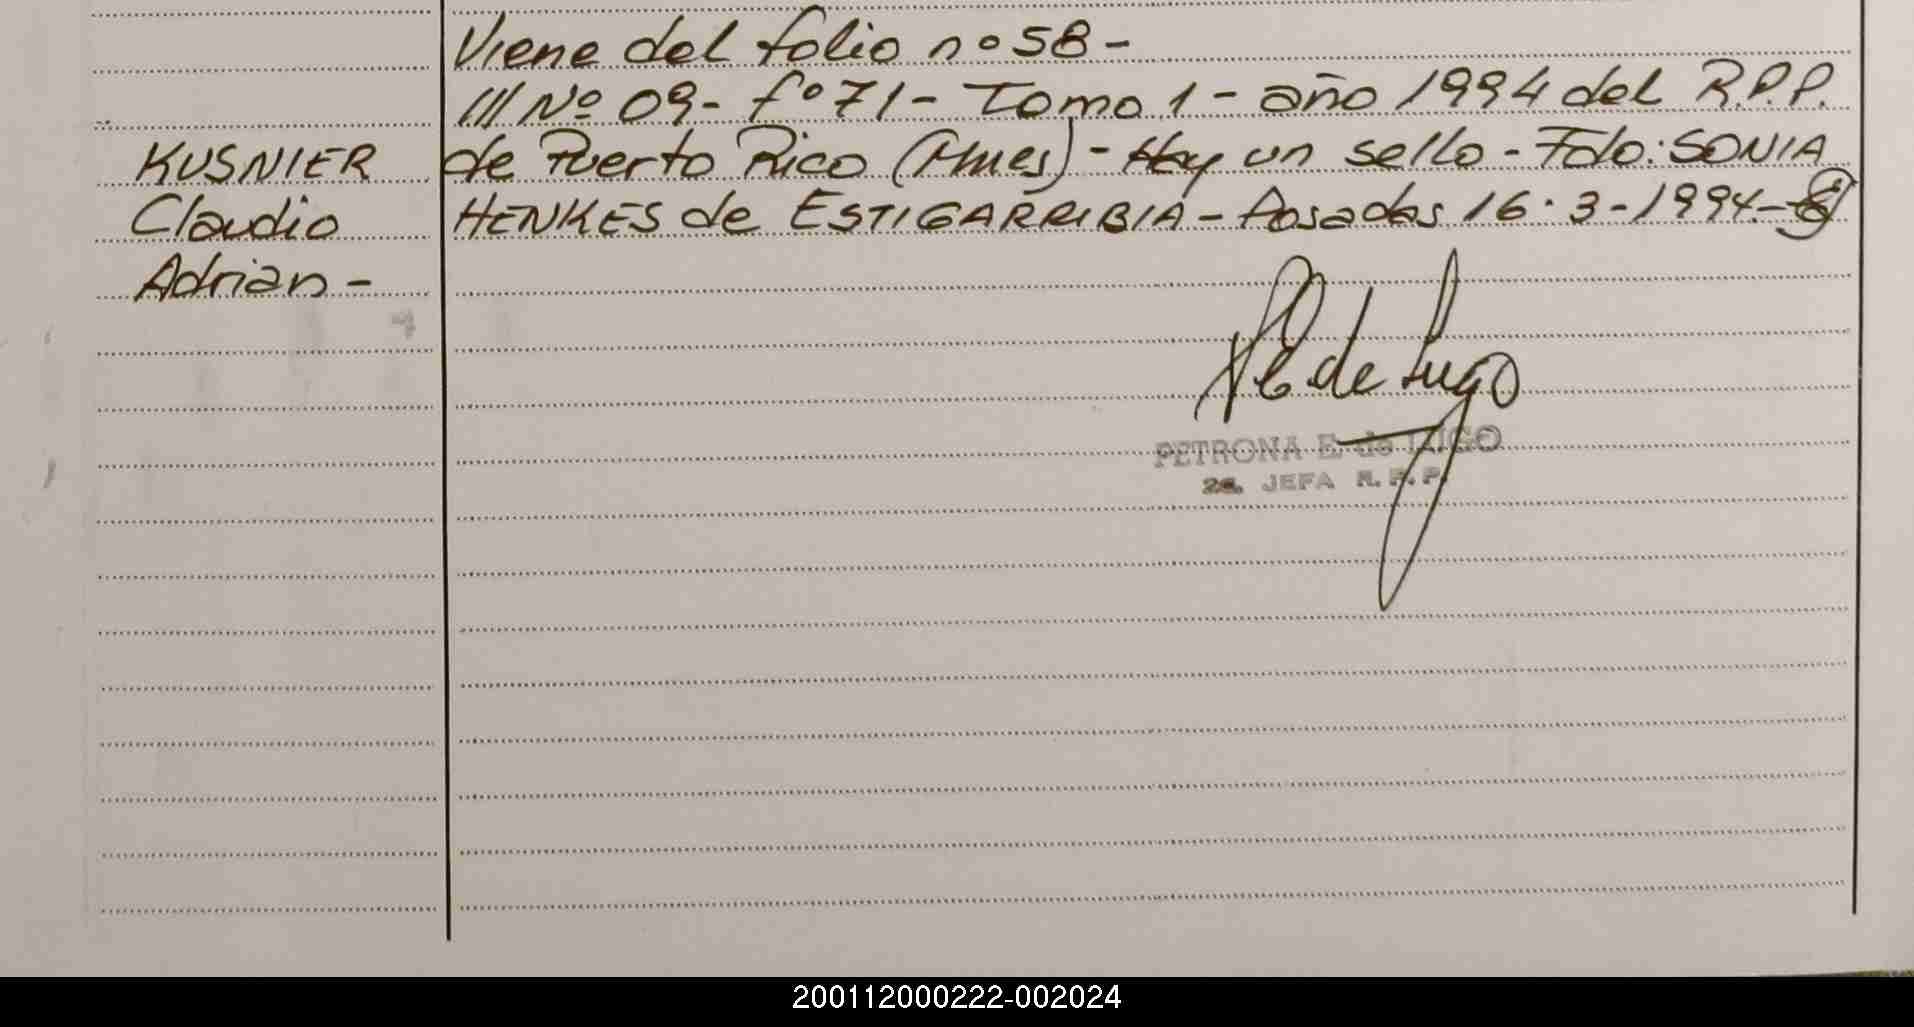 Viene del folio nº 58 -
/// Nº 09 - fº 71 - Tomo 1 - año 1994 del R.P.P.
de Puerto Rico (Mnes) - Hay un sello - Fdo: SONIA
HENKES de ESTIGARRIBIA - Posadas 16 - 3 - 1994.-
KUSNIER
Claudio
Adrian -
PE de Lugo
PETRONA E. de LUGO
2a. JEFA R. P. P.
200112000222-002024